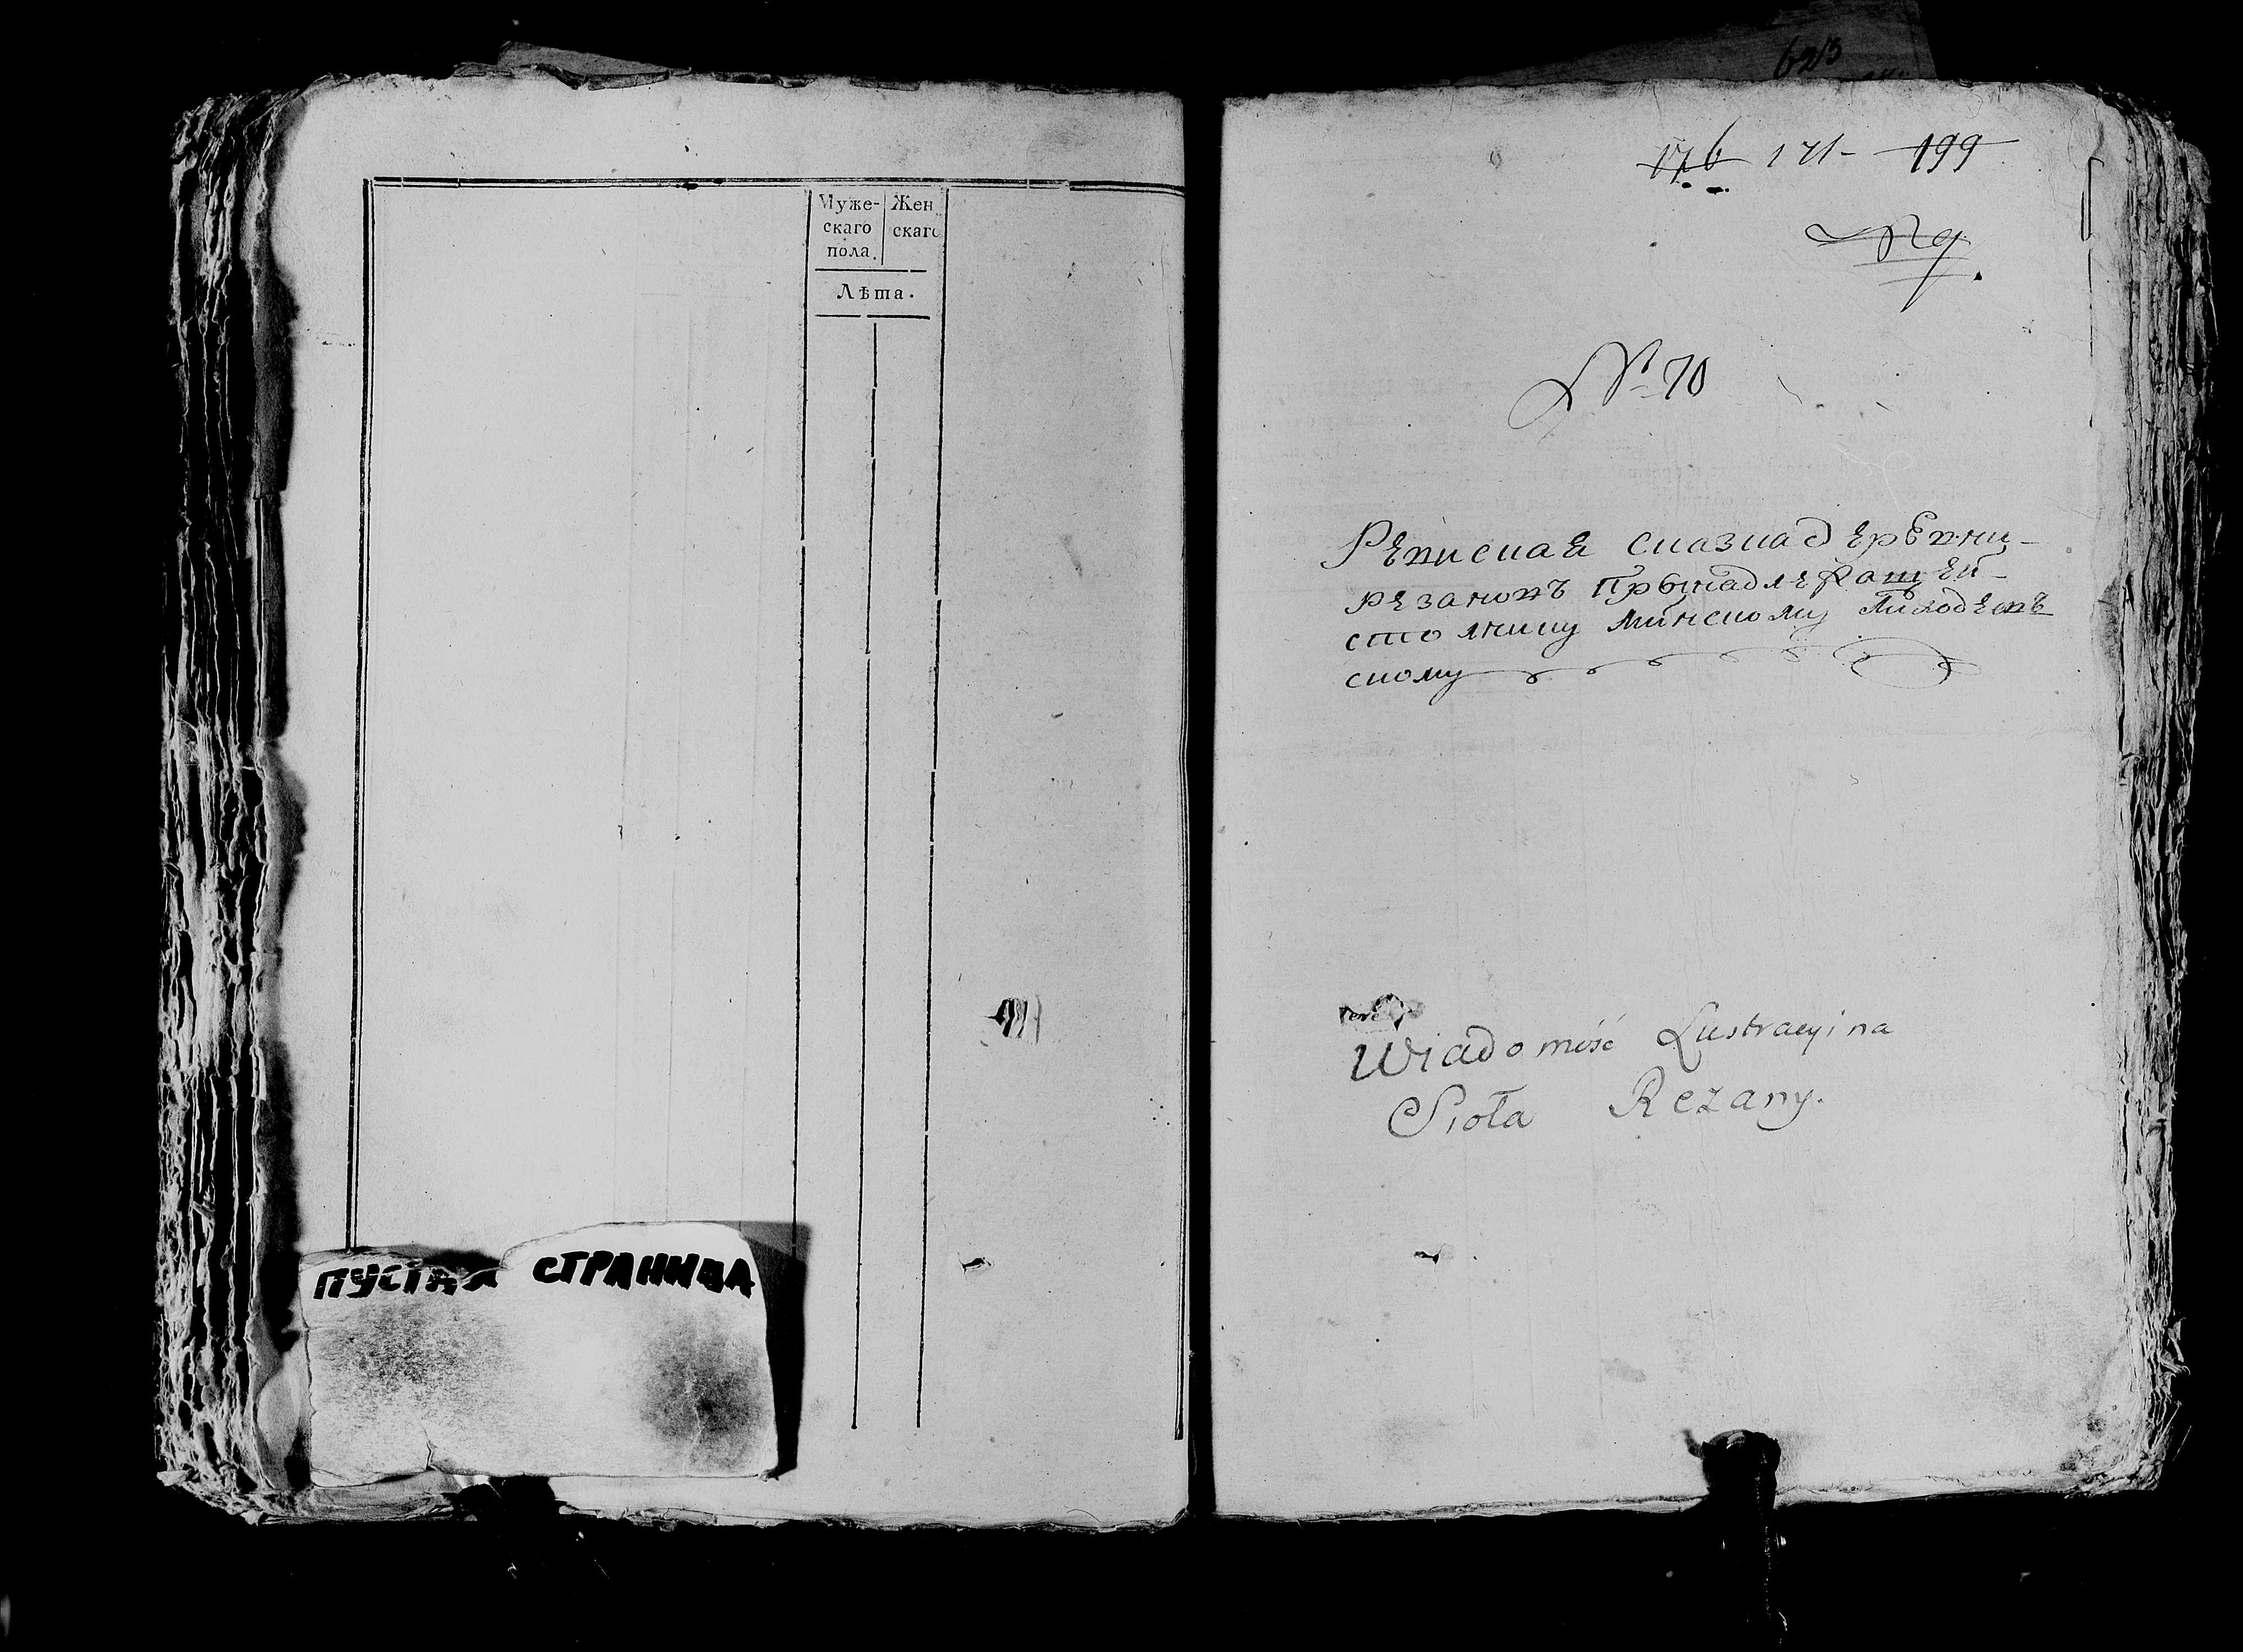 Муже- Жен
скаго скаго
пола.
Лѣта.
ПУСТАЯ СТРАНИЦА
623
176 171- 199
№ 70
Ревиская сказка деревни
резановъ Прынадлежащей
столнику минскому Володков
скому
Wiadomość Lustracyina
Sioła Rezany.